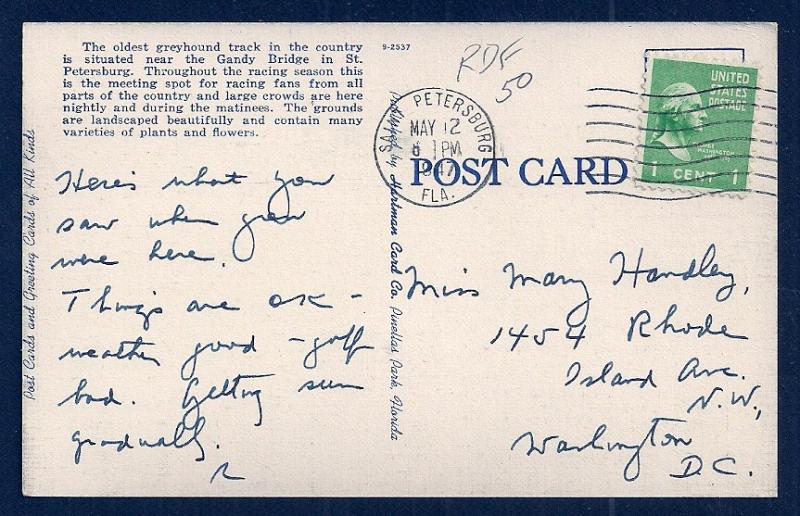 The oldest greyhound track in the country
is situated near the Gandy Bridge in St.
Petersburg. Throughout the racing season this
is the meeting spot for racing fans from all
parts of the country and large crowds are here
nightly and during the matinees. The grounds
are landscaped beautifully and contain many
varieties of plants and flowers.
9-2537
RDF
50
PETERSBURG
MAY 12
PM
1947
FLA.
UNITED
STATES
POSTAGE
WASHINGTON
1 CENT 1
POST CARD
Post Cards and Greeting Cards of All Kinds
Here's what you
saw when you
were here.
Things are OK -
weather good - golf
bad. Getting sun
gradually.
Produced by Hartman Card Co. Pinellas Park, Florida
Miss Mary Handley,
1454 Rhode
Island Ave.
N.W.,
Washington
D.C.